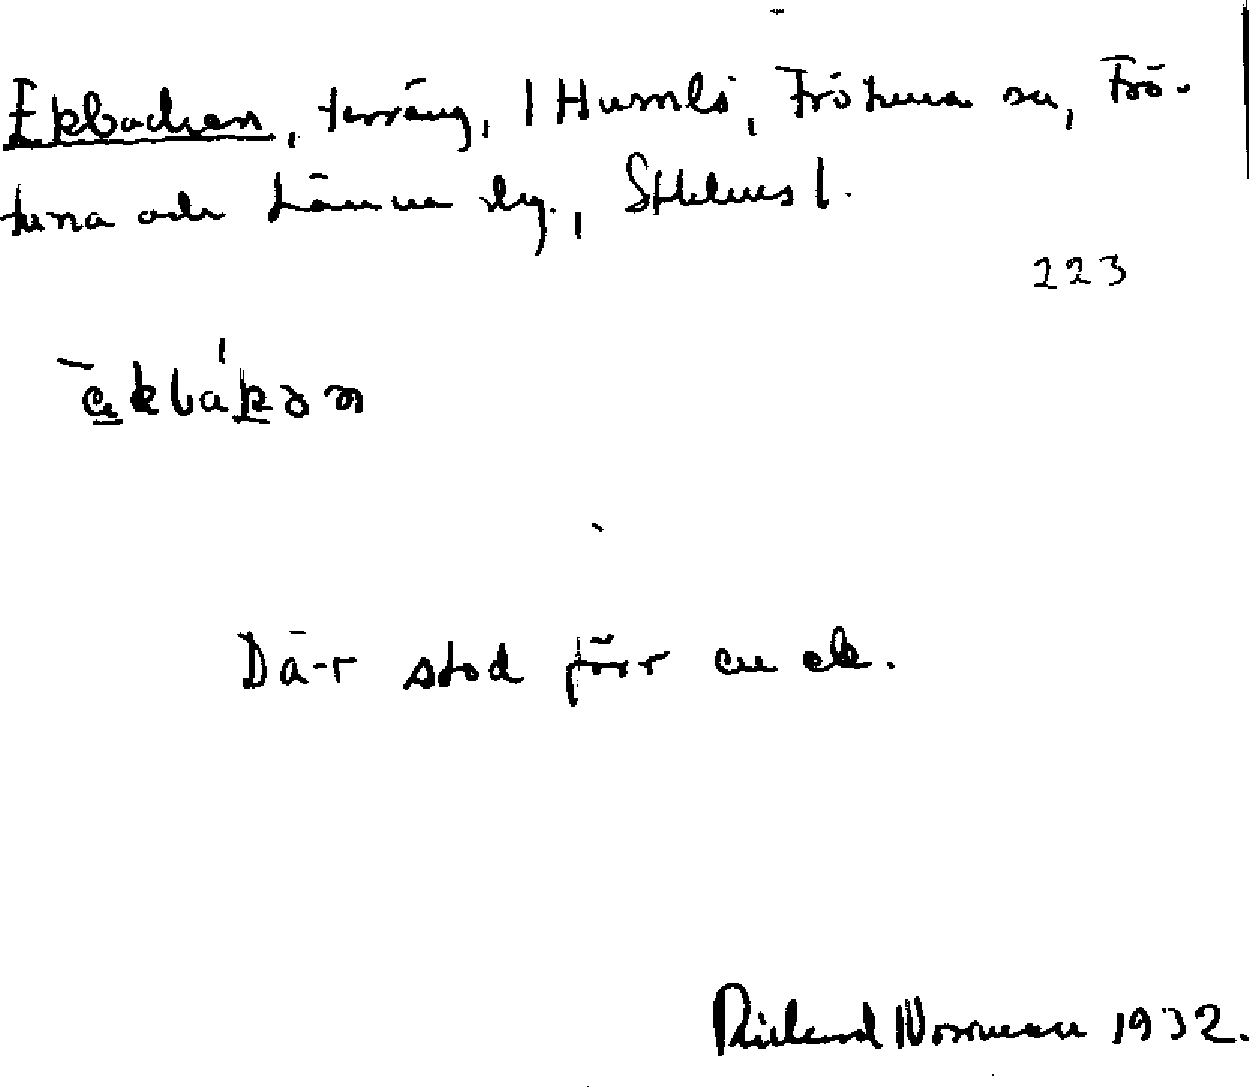 Ekbacken, terräng, 1 Humlö, Frötuna sn, Frö-
tuna och Länna skg., Sthlms l.
223
Där stod förr en ek.
Rickard Norrman 1932.